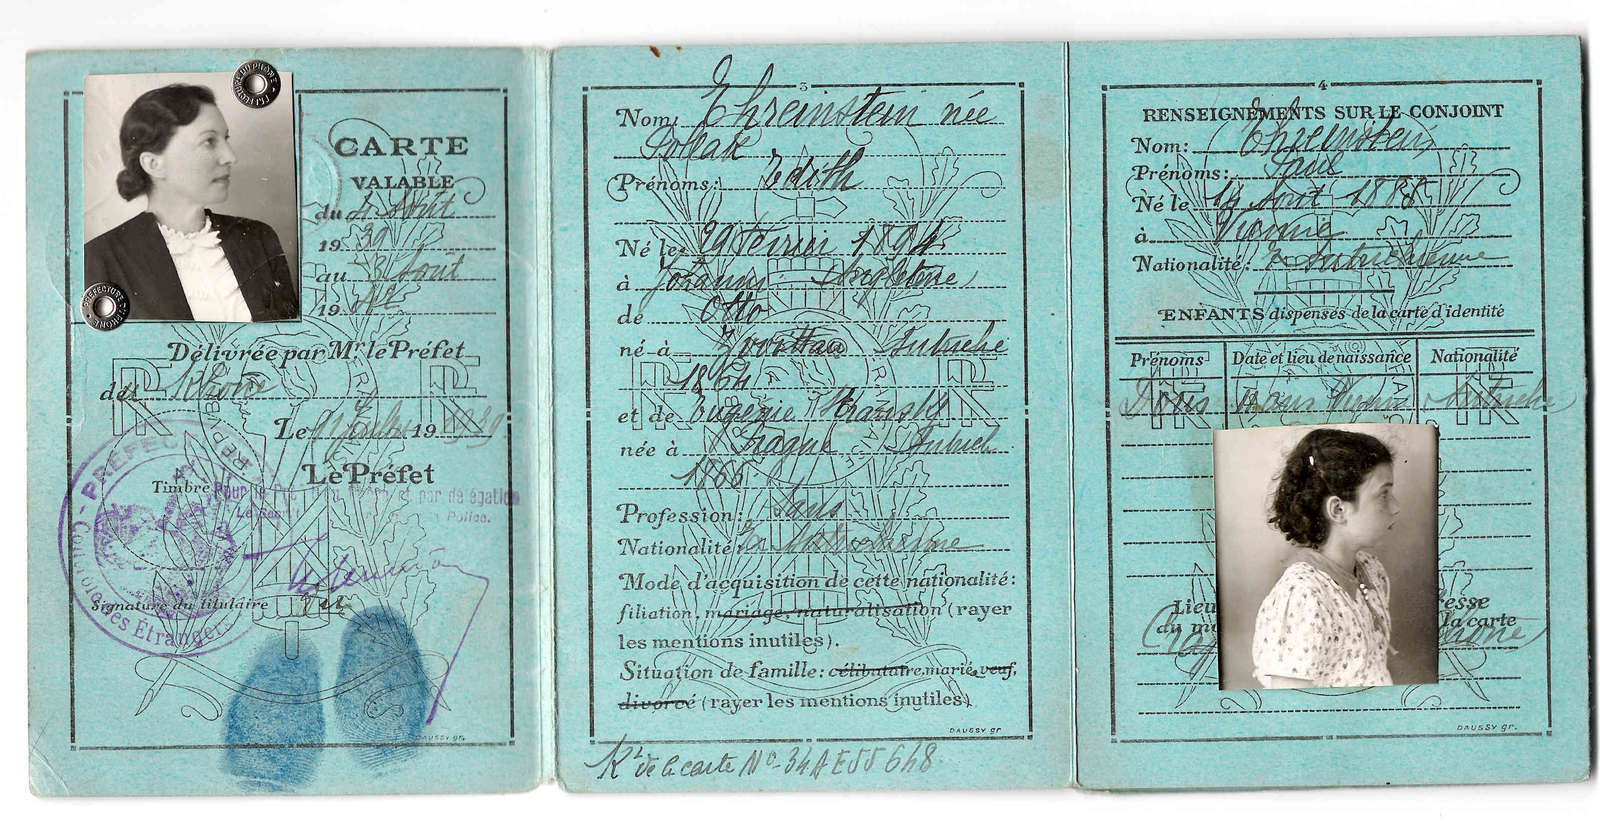 CARTE
VALABLE
du 4 Août
1939
au 3 Août
1942
Délivrée par Mr. le Préfet
du Rhône
Le 19
Le Préfet
Timbre
Pour le et par délégation
Police.
Signature du titulaire
PRÉFECTURE DU RHONE
PREFECTURE DU RHONE
Étrangers
DAUSSY gr.
3
Nom: Ehreinstein née
Pollak
Prénoms: Edith
Né le 29 Février 1894
à
de Otto
né à Autriche
1864
et de Eugénie
née à Prague Autrich
1866
Profession: Sans
Nationalité: Ex Autrichienne
Mode d'acquisition de cette nationalité:
filiation, mariage, naturalisation (rayer
les mentions inutiles).
Situation de famille: célibataire, marié, veuf,
divorcé (rayer les mentions inutiles)
DAUSSY gr
de la carte No 34AE55648
4
RENSEIGNEMENTS SUR LE CONJOINT
Nom: Ehreinstein
Prénoms: Paul
Né le 14 Août 1888
à Vienne
Nationalité: Ex Autrichienne
ENFANTS dispensés de la carte d'identité
Prénoms Date et lieu de naissance Nationalité
Doris Autriche
Lieu
du
la carte
DAUSSY gr.